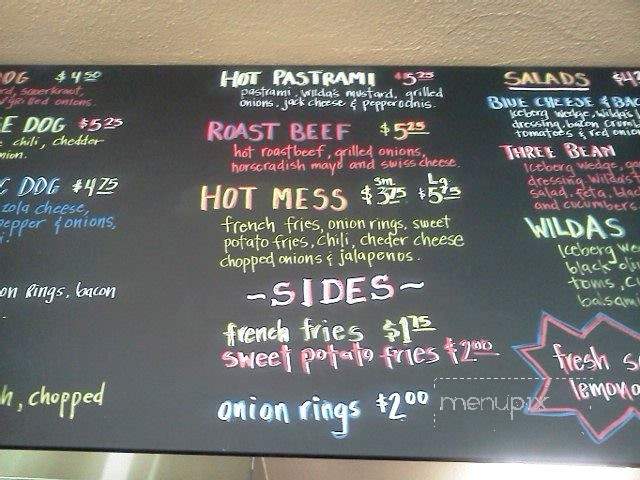 DOG $4.50
sauerkraut,
grilled onions.
E DOG $5.25
chili, cheddar
onion.
DOG $4.75
zola cheese,
pepper & onions,
on Rings, bacon
h, chopped
HOT PASTRAMI $5.25
pastrami, wilda's mustard, grilled
onions, jack cheese & pepperochis.
ROAST BEEF $5.25
hot roastbeef, grilled onions,
horseradish mayo and swiss cheese.
HOT MESS sm. $3.75 Lg. $5.75
french fries, onion rings, sweet
potato fries, chili, cheder cheese
chopped onions & jalapenos.
~SIDES~
french fries $1.75
sweet potato fries $2.00
onion rings $2.00
SALADS $4.
BLUE CHEESE & BA
Iceberg wedge, wilda's
dressing, bacon crumb
tomatoes & red onio
THREE BEAN
Iceberg wedge,
dressing, wilda's
salad, feta,
and cucumbers.
WILDAS
Iceberg we
black oli
toms, cu
balsam
fresh s
lemona
menupix